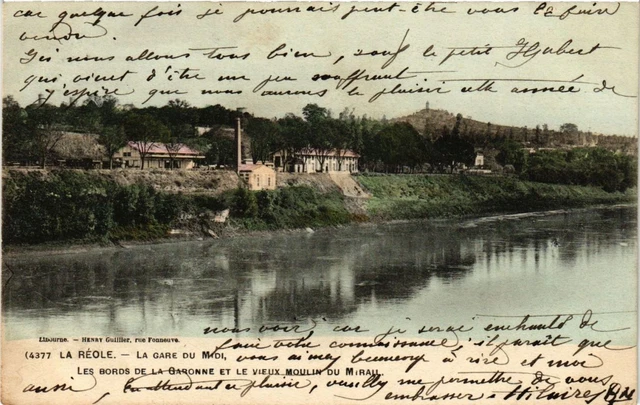 car quelque fois je pourrais peut-être vous la faire
vendre.
Ici nous allons tous bien, sauf le petit Hubert
qui vient d'être un peu souffrant
j'espère que nous aurons le plaisir cette année de
Libourne. — HENRY Guillier, rue Fonneuve.
nous voir car je serai enchanté de
(4377 LA RÉOLE. — LA GARE DU MIDI,
faire votre connaissance, il paraît que
vous aimez beaucoup à rire et moi
LES BORDS DE LA GARONNE ET LE VIEUX MOULIN DU MIRAIL
aussi, En attendant ce plaisir, veuillez me permettre de vous
embrasser. Hilaire